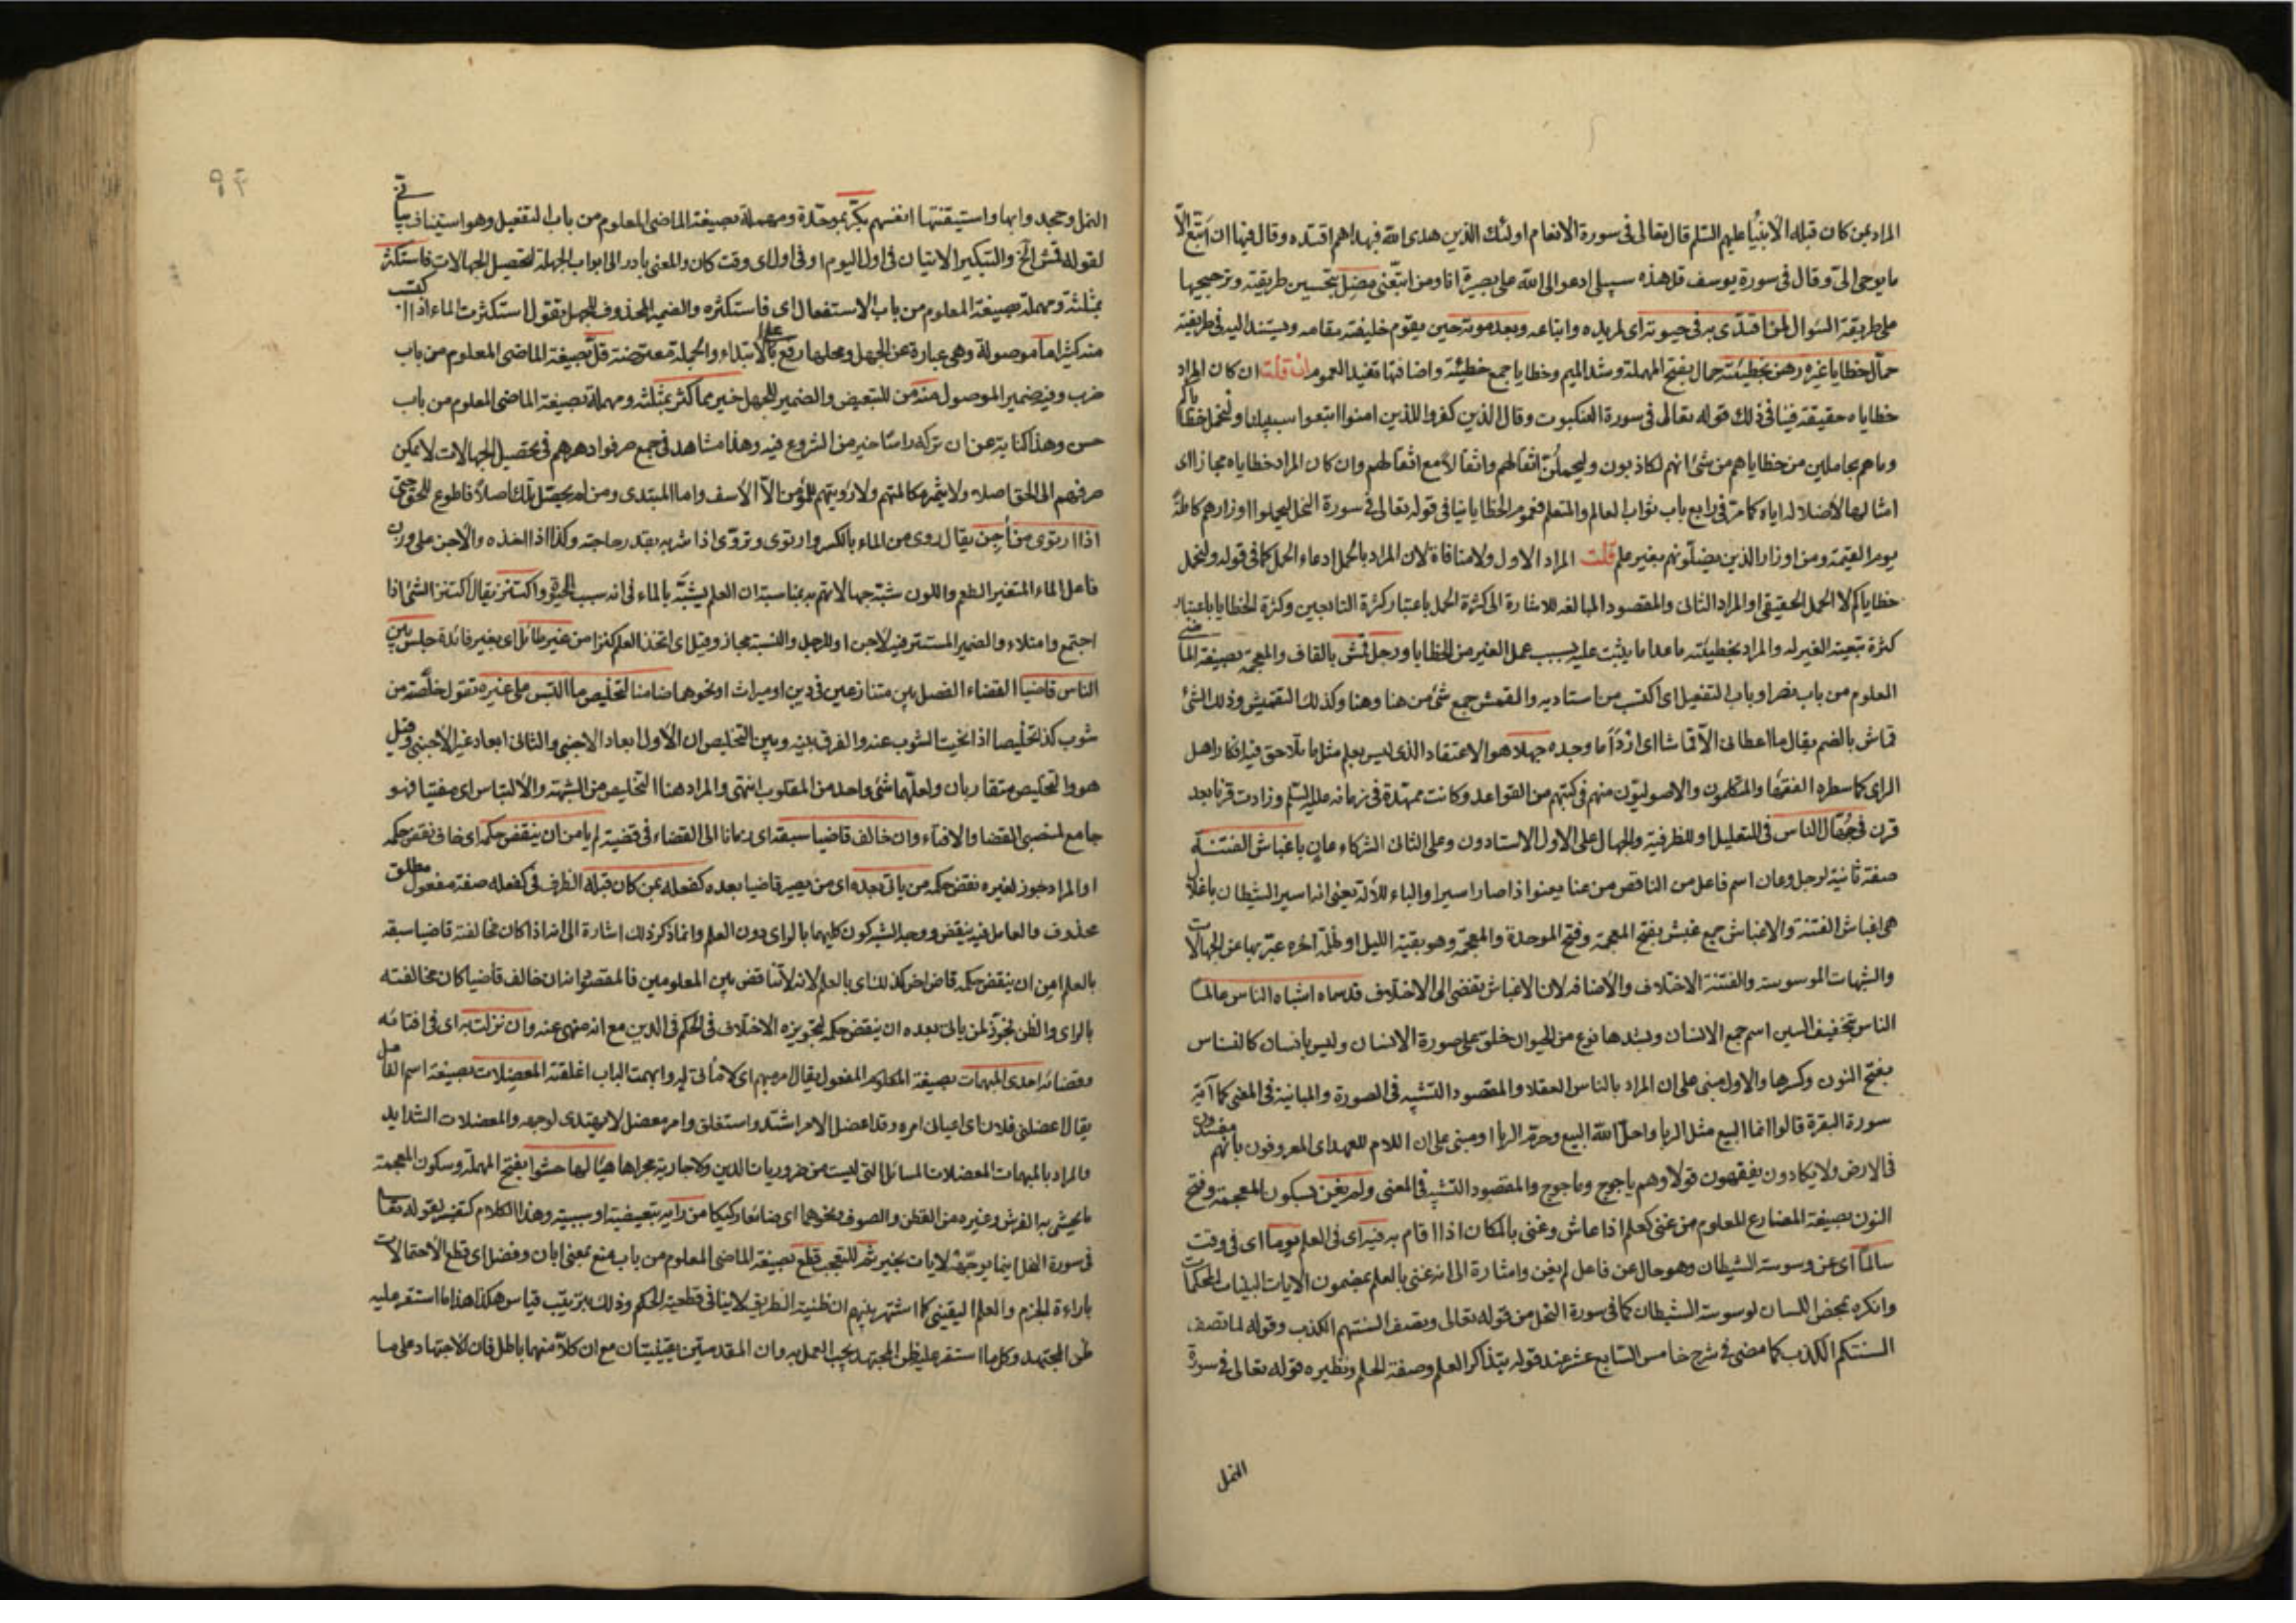 المراد بمن كان قبله الأنبياء عليهم السلم قال تعالى فى سورة الانعام اولئك الذين هدى الله فبهداهم اقتده وقال فيها ان اتبع الّا
ما يوحى الىّ وقال فى سورة يوسف قل هذه سبيلى ادعو الى الله على بصيرة انا ومن اتبعنى مضل بتحسين طريقته وترجيحها
على طريقة السؤال لمن اقتدى به فى حيوته اى لمريده واتباعه وبعد موته حين يقوم خليفته مقامه ويستند اليه فى طريقته
حمّال خطايا غيره رهن بخطيئته حمال بفتح المهملة وشد الميم وخطايا جمع خطيئة واضافتها تفيد العموم ان قلت ان كان المراد
خطاياه حقيقة فينافى ذلك قوله تعالى فى سورة العنكبوت وقال الذين كفروا للذين امنوا اتبعوا سبيلنا ولنحمل خطاياكم
وما هم بحاملين من خطاياهم من شئ انهم لكاذبون وليحملن اثقالهم واثقالا مع اثقالهم وان كان المراد خطاياه مجازا اى
امثالها لأضلاله اياه كما مرّ فى رابع باب ثواب العالم والمتعلم فعموم الخطايا ينافى قوله تعالى فى سورة النحل ليحملوا اوزارهم كاملة
يوم القيمة ومن اوزار الذين يضلّونهم بغير علم قلت المراد الاول ولا منافاة لان المراد بالحمل ادعاء الحمل كما فى قوله ولنحمل
خطاياكم لا الحمل الحقيقى او المراد الثانى والمقصود المبالغه للاشارة الى كثرة الحمل باعتبار كثرة التابعين وكثرة الخطايا باعتبار
كثرة تبعية الغير له والمراد بخطيئته ما عدا ما يثبت عليه بسبب عمل الغير من الخطايا ورجل قمش بالقاف والمعجمة بصيغة الماضى
المعلوم من باب نصر او باب التفعيل اى اكتسب من استاديه والقمش جمع شئ من هنا وهنا وكذلك التقميش وذلك الشئ
قماش بالضم يقال ما اعطانى الّا قماشا اى اردأ ما وجده جهلا هو الاعتقاد الذى ليس بعلم مثل ما تلاحق فيه افكار اهل
الراى كما سطره الفقهاء والمتكلمون والاصوليّون منهم فى كتبهم من القواعد وكانت ممهدة فى زمانه عليه السلم وزادت قرنا بعد
قرن فى جهّال الناس فى للتعليل او للظرفية والجهال على الاول الاستادون وعلى الثانى الشركاء عان باغباش الفتنة
صفة ثانية لرجل وعان اسم فاعل من الناقص من عنا يعنو اذا صار اسيرا والباء للآلة يعنى انه اسير الشيطان باغلال
هى اغباش الفتنة والاغباش جمع غبش بفتح المعجمة وفتح الموحدة والمعجمة وهو بقية الليل او ظلمة اخره عبّر بها عن الجهالات
والشبهات الموسوسة والفتنة الاختلاف والأضافه لان الاغباش تفضى الى الاختلاف قد سماه اشباه الناس عالما
الناس بتخفيف السين اسم جمع الانسان وبشدها نوع من الحيوان خلق على صورة الانسان وليس بانسان كالنسناس
بفتح النون وكسرها والاول مبنى على ان المراد بالناس العقلا والمقصود التشبيه فى الصورة والمباينة فى المعنى كما آية
سورة البقرة قالوا انما البيع مثل الربا واحل الله البيع وحرّم الربا او مبنى على ان اللام للعهد اى المعروفون بانهم مفسدون
فى الارض ولا يكادون يفقهون قولا وهم ياجوج وماجوج والمقصود التشبيه فى المعنى ولم يغن بسكون المعجمة وفتح
النون بصيغة المضارع المعلوم من غنى كعلم اذا عاش وغنى بالمكان اذا اقام به فيه اى فى العلم يوما اى فى وقت
سالما اى عن وسوسة الشيطان وهو حال عن فاعل لم يغن واشارة الى انه غنى بالعلم بمضمون الايات البينات المحكمات
وانكره بمحض اللسان لوسوسة الشيطان كما فى سورة النحل من قوله تعالى وتصف السنتهم الكذب وقوله لما تصف
السنتكم الكذب كما مضى فى شرح خامس السّابع عشر عند قوله بتذاكر العلم وصفة الحلم ونظيره قوله تعالى فى سورة
النمل
النمل وجحدوا بها واستيقنتها انفسهم بكّر بموحّدة ومهملة بصيغة الماضى المعلوم من باب التفعيل وهو استيناف بيانى
لقوله قمش الخ والتبكير الاتيان فى اول اليوم او فى اول اى وقت كان والمعنى بادر الى ابواب الجهلة لتحصيل الجهالات فاستكثر
بمثلثة ومهملة بصيغة المعلوم من باب الاستفعال اى فاستكثره والضمير المحذوف للجهل تقول استكثرت الماء اذا اكتسبت
منه كثيرا ما موصولة وهى عبارة عن الجهل ومحلها رفع بالابتداء والجملة معترضة قلّ بصيغة الماضى المعلوم من باب
ضرب وفيه ضمير الموصول منه من للتبعيض والضمير للجهل خير مما كثر بمثلثة ومهملة بصيغة الماضى المعلوم من باب
حسن وهذا كناية عن ان تركه راسًا خير من الشروع فيه وهذا مشاهد فى جمع صرفوا دهرهم فى تحصيل الجهالات لا يمكن
صرفهم الى الحق اصلا ولا يثمر مكالمتهم ولا رؤيتهم للمؤمن الّا الأسف واما المبتدى ومن لم يحصّل ذلك اصلا فاطوع للحق حتى
اذا ارتوى من آجن يقال روى من الماء بالكسر وارتوى وتروّى اذا شربه بقدر حاجته وكذا اذا اخذه والآجن على وزن
فاعل الماء المتغير الطعم واللون شبّه جهالاتهم به بمناسبة ان العلم يشبّه بالماء فى انه سبب الحيوة واكتنز يقال اكتنز الشئ اذا
اجتمع وامتلاء والضمير المستتر فيه لآجن او للرجل والنسبة مجاز وقيل اى اتخذ العلم كنزا من غير طائل اى بغير فائدة جلس بين
الناس قاضيا القضاء الفصل بين متنازعين فى دين او ميراث او نحوهما ضامنا لتخليص ما التبس على غيره تقول خلّصته من
شوب كذا تخليصا اذا نحيت الشوب عنه والفرق بينه وبين التلخيص ان الأول ابعاد الاجنبى والثانى ابعاد غير الأجنبى وقيل
هو والتلخيص متقاربان ولعلّهما شئ واحد من المقلوب انتهى والمراد هنا التخليص من الشبهة والالتباس اى مفتيا فهو
جامع لمنصبى القضا والافتاء وان خالف قاضيا سبقه اى زمانا الى القضاء فى قضية لم يامن ان ينقض حكمه اى خاف نقض حكمه
او المراد جوز لغيره نقض حكمه من ياتى بعده اى من يصير قاضيا بعده كفعله بمن كان قبله الظرف فى كفعله صفة مفعول مطلق
محذوف والعامل فيه ينقض ووجه الشبه كون كليهما بالراى دون العلم وانما ذكر ذلك اشارة الى انه اذا كان مخالفته قاضيا سبقه
بالعلم امن ان ينقض حكمه قاض اخر كذلك اى بالعلم لانه لا تناقض بين المعلومين فالمقصود انه ان خالف قاضيا كان مخالفته
بالراى والظن تجوّز لمن ياتى بعده ان ينقض حكمه لتجويزه الاختلاف فى الحكم فى الدين مع انه منهى عنه وان نزلت به اى فى افتائه
وقضائه احدى المبهمات بصيغة المعلوم المفعول يقال امر مبهم اى لا مأتى له وابهمت الباب اغلقته المعضلات بصيغة اسم الفاعل
يقال اعضلنى فلان اى اعيانى امره وقد اعضل الامر اشتد واستغلق وامر معضل لا يهتدى لوجهه والمعضلات الشدايد
والمراد بالمبهمات المعضلات المسائل التى ليست من ضروريات الدين ولا جارية مجراها هيّا لها حشوا بفتح المهملة وسكون المعجمة
ما يحشى به الفرش وغيره من القطن والصوف ونحوهما اى ضائعا ركيكا من رايه تبعيضية او سببية وهذا الكلام كتفسير لقوله تعالى
فى سورة النحل اينما يوجّهه لا يات بخير ثم للتعجب قطع بصيغة الماضى المعلوم من باب منع بمعنى ابان وفصل اى قطع الاحتمالات
باراءة الجزم والعلم اليقينى كما اشتهر بينهم ان ظنية الطريق لا ينافى قطعية الحكم وذلك بترتيب قياس هكذا هذا ما استقر عليه
ظن المجتهد وكل ما استقر عليه ظن المجتهد يجب العمل به وان المقدمتين يقينيتان مع ان كلّا منهما باطل فان الاجتهاد على ما